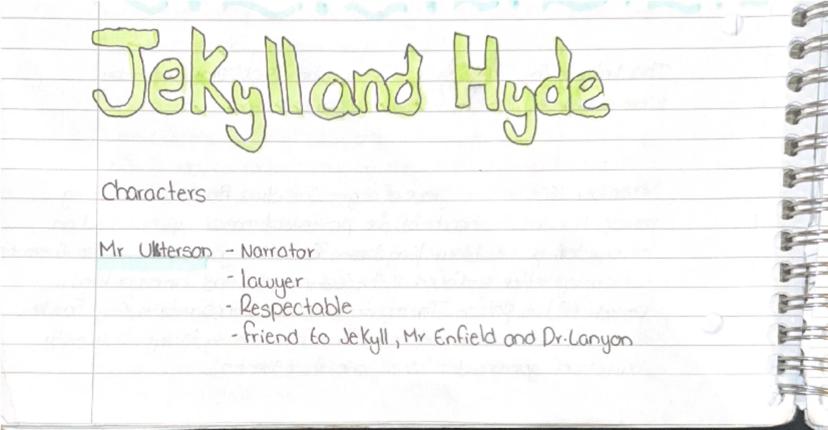 Jekyll and Hyde
Characters
Mr Utterson - Narrator
- lawyer
- Respectable
- friend to Jekyll, Mr Enfield and Dr. Lanyon